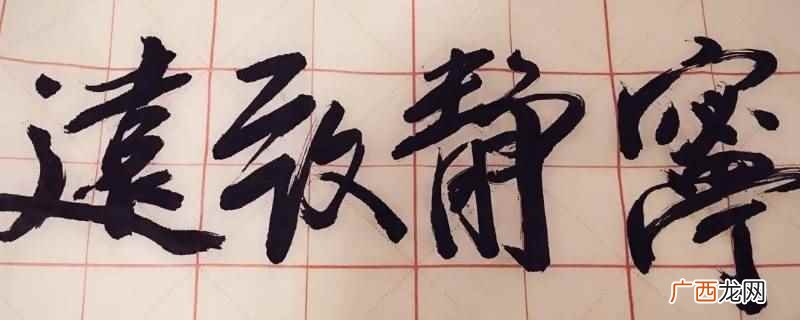 寧靜致遠
广西龙网